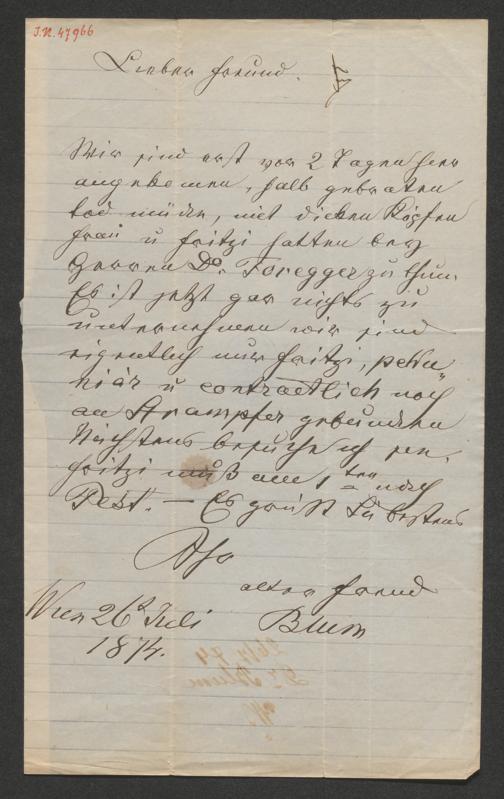 J.N. 47966
Lieber Freund.
Wir sind erst vor 2 Tagen hier
angekomen, halb gebraten
tod müde, mit dicken Köpfen
Frau u Fritzi hatten bey
Herren Dr. Foregger zu thun.
Es ist jetzt gar nichts zu
unternehmen wir sind
eigentlich nur Fritzi, peku
niär u contractlich noch
an Strampfer gebunden
Nächstens besuche ich
Fritzi muß am 1ten nach
Pest. — Es grüßt Sie bestens
Ihr
alter Freund
Blum
Wien 26t Juli
1874.